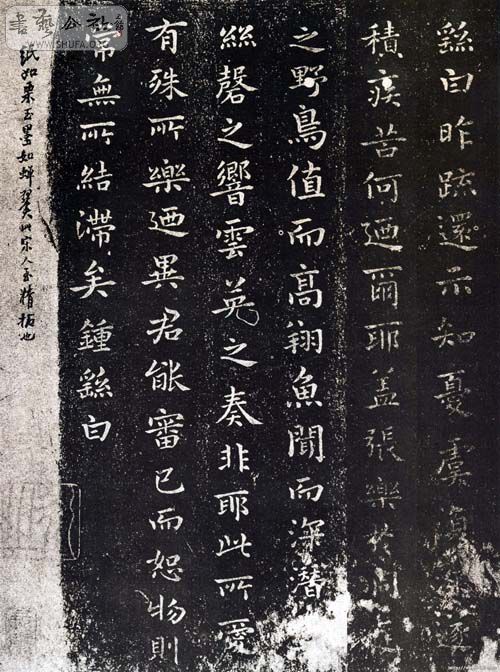 繇白昨疏還示知憂虞復深遂
積疾苦何迺爾耶盖張樂於洞庭
之野鳥值而高翔魚聞而深潛
絲磬之響雲英之奏非耶此所愛
有殊所樂迺異君能審己而恕物則
常無所結滯矣鍾繇白
紙如栗玉墨如蟬翼此宋人至精拓也
書藝公社
WWW.SHUFA.ORG